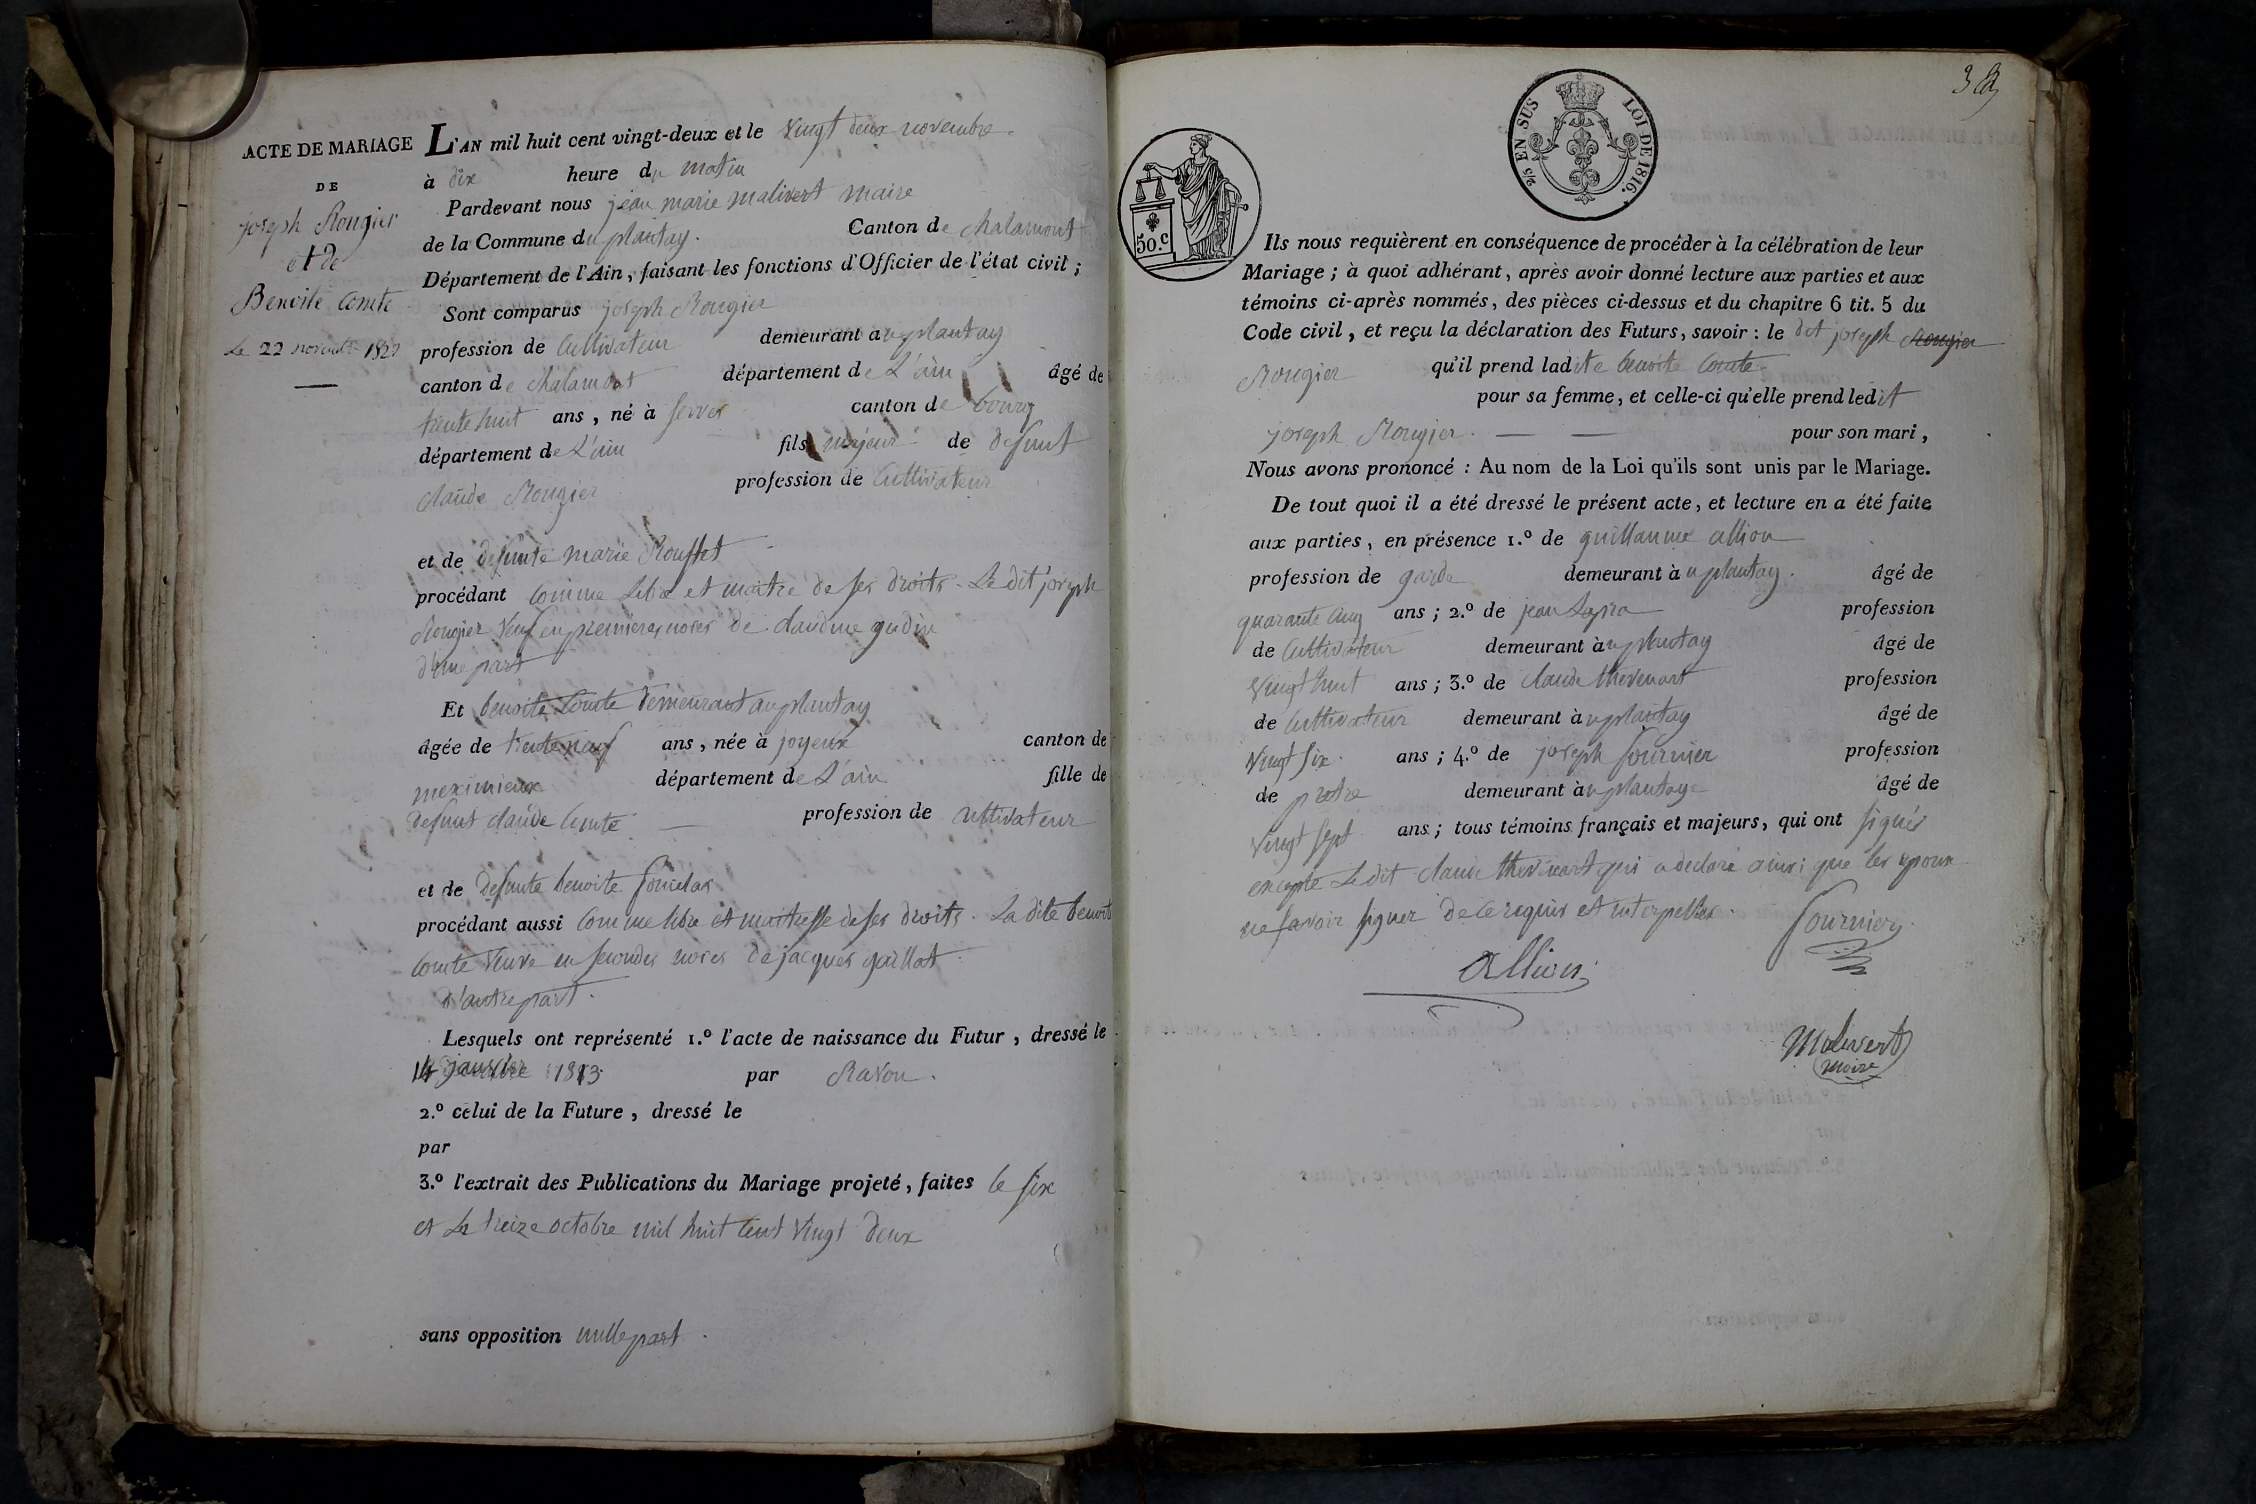 ACTE DE MARIAGE
DE
joseph Rougier
et de
Benoite Comte
Le 22 novembre 1822
L'AN mil huit cent vingt-deux et le vingt deux novembre
à dix heure du matin
Pardevant nous jean marie malivert maire
de la Commune du plantay. Canton de chalamont
Département de l'Ain, faisant les fonctions d'Officier de l'état civil ;
Sont comparus joseph Rougier
profession de Cultivateur demeurant au plantay
canton de chalamont département de L'ain âgé de
trente huit ans, né à servas canton de bourg
département de L'ain fils majeur de defunt
claude Rougier profession de Cultivateur
et de defunte marie
procédant comme Libre et maitre de ses droits. Le dit joseph
Rougier veuf en premieres noces de claudine gudin
d'une part
Et benoite Comte demeurant au plantay
âgée de trente neuf ans, née à joyeux canton de
meximieux département de L'ain fille de
defunt claude Comte profession de cultivateur
et de defunte benoite
procédant aussi Comme libre et maitresse de ses droits. La dite benoite
Comte veuve en secondes noces de jacques gaillat
d'autre part.
Lesquels ont représenté 1.º l'acte de naissance du Futur, dressé le
14 janvier par Ravon.
2.º celui de la Future, dressé le
par
3.º l'extrait des Publications du Mariage projeté, faites le six
et Le treize octobre mil huit cent vingt deux
sans opposition nulle part.
50.c
2/5 EN SUS LOI DE 1816.
Ils nous requièrent en conséquence de procéder à la célébration de leur
Mariage ; à quoi adhérant, après avoir donné lecture aux parties et aux
témoins ci-après nommés, des pièces ci-dessus et du chapitre 6 tit. 5 du
Code civil, et reçu la déclaration des Futurs, savoir : le dit joseph Rougier
Rougier qu'il prend ladite benoite Comte
pour sa femme, et celle-ci qu'elle prend ledit
joseph Rougier. pour son mari,
Nous avons prononcé : Au nom de la Loi qu'ils sont unis par le Mariage.
De tout quoi il a été dressé le présent acte, et lecture en a été faite
aux parties, en présence 1.º de guillaume allion
profession de garde demeurant à u plantay. âgé de
quarante cinq ans ; 2.º de jean profession
de Cultivateur demeurant à u plantay âgé de
vingt huit ans ; 3.º de claude thevenart profession
de Cultivateur demeurant à u plantay âgé de
vingt six ans ; 4.º de joseph fournier profession
de pretre demeurant à u plantay âgé de
vingt sept ans ; tous témoins français et majeurs, qui ont signés
excepté Le dit claude thevenart qui a declaré ainsi que les epoux
ne savoir signer de ce requis et interpellés.
fournier
allion
Malivert
maire